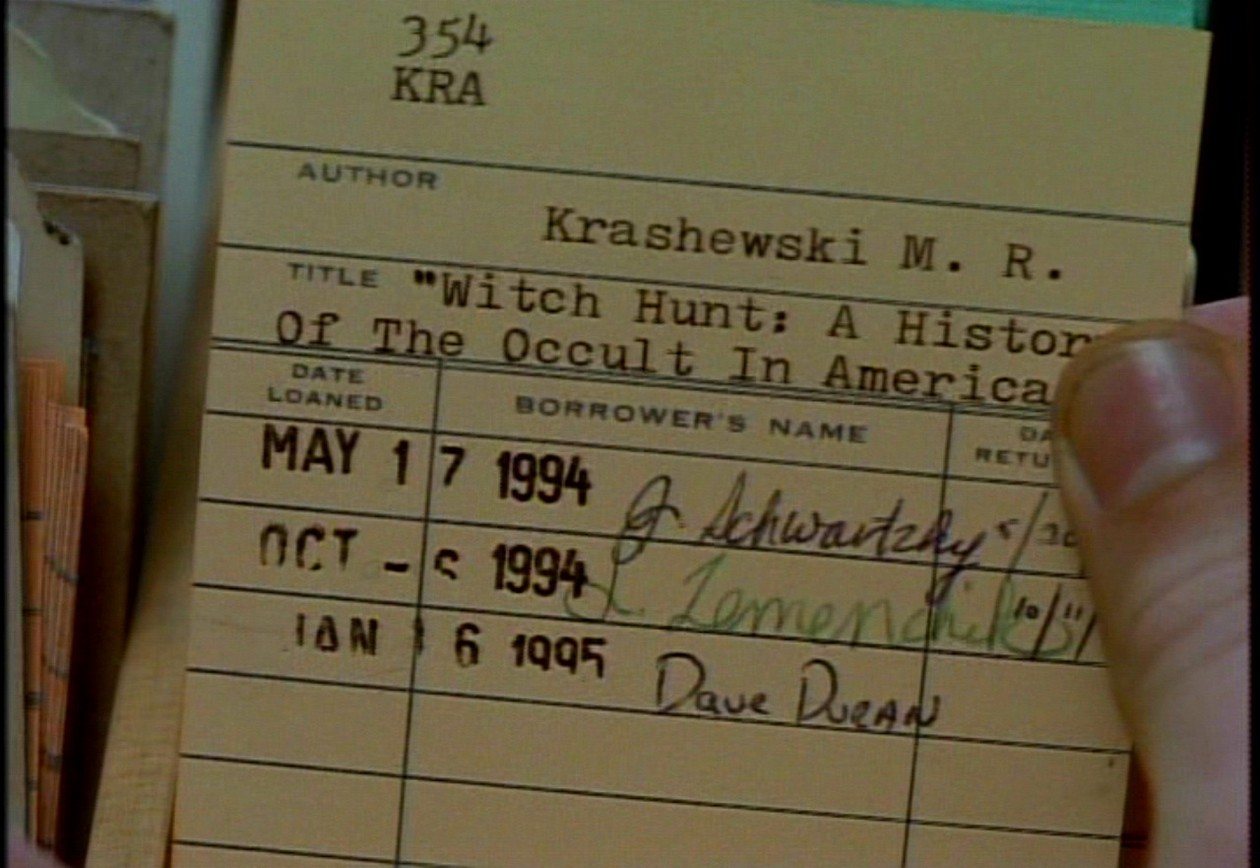 354
KRA
AUTHOR
Krashewski M. R.
TITLE "Witch Hunt: A Histor
Of The Occult In America
DATE LOANED
BORROWER'S NAME
DA
RETU
MAY 17 1994 J. Schwartzky 5/30
OCT - 6 1994 L. 10/11/
JAN 16 1995 Dave DURAN